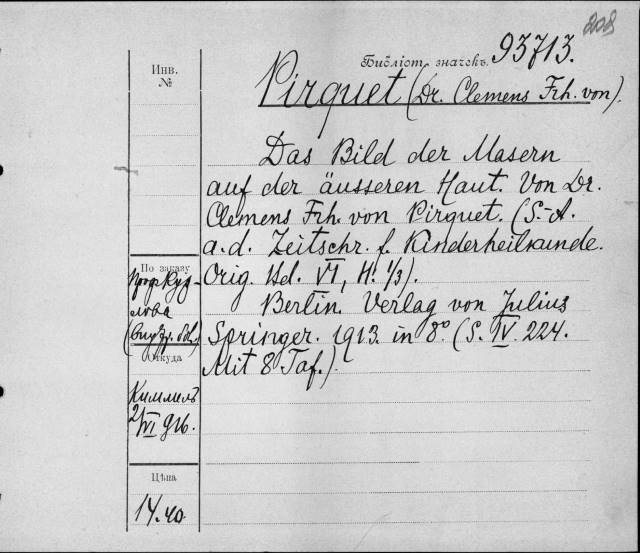 208
Библіот. значекъ. 93713.
Инв.
№
Pirquet (Dr. Clemens Frh. von).
Das Bild der Masern
auf der äusseren Haut. Von Dr.
Clemens Frh. von Pirquet. (S.-A.
a. d. Zeitschr. f. Kinderheilkunde.
Orig. Bd. VI, H. 1/3).
Berlin. Verlag von Julius
Springer. 1913. in 8° (S. IV. 224.
Mit 8 Taf.).
По заказу
Проф.
Откуда
Киммель
2/VI 916.
Цѣна
14.40